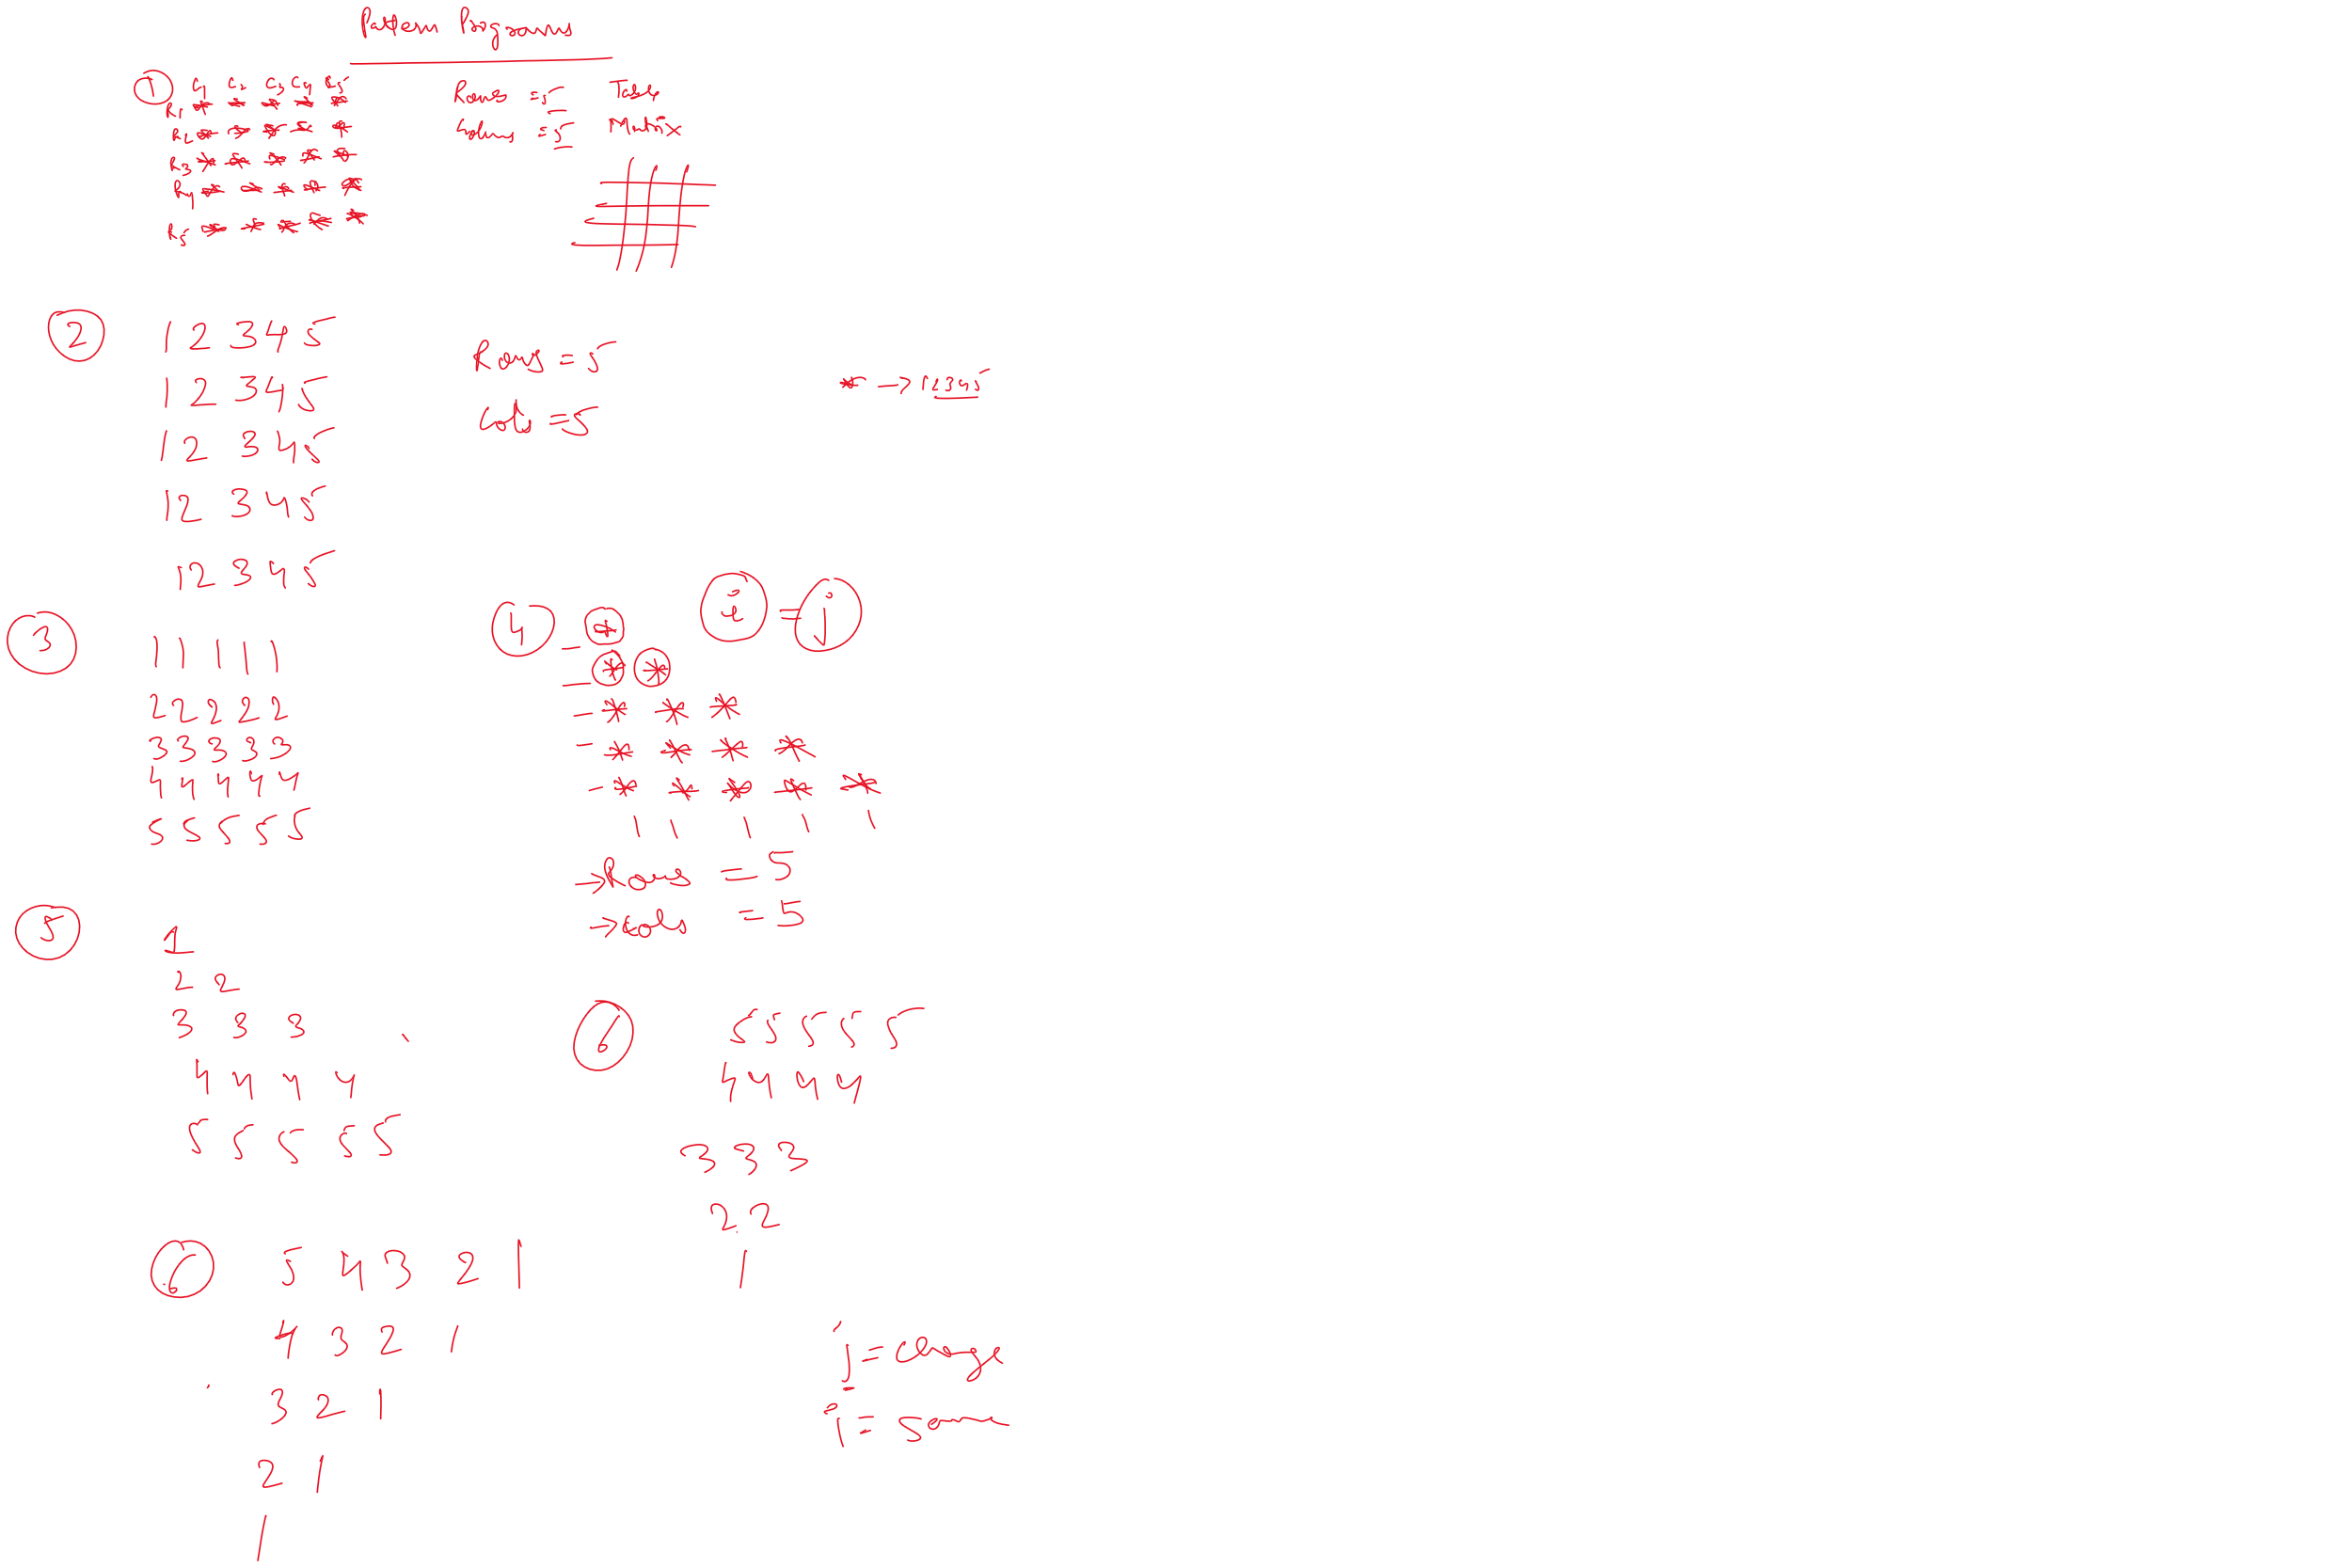 Pattern Programs
① C1 C2 C3 C4 C5
R1 * * * * *
R2 * * * * *
R3 * * * * *
R4 * * * * *
R5 * * * * *
Rows = 5
Columns = 5
Table
Matrix
② 1 2 3 4 5
1 2 3 4 5
1 2 3 4 5
1 2 3 4 5
1 2 3 4 5
Rows = 5
Cols = 5
* →
③ 1 1 1 1 1
2 2 2 2 2
3 3 3 3 3
4 4 4 4 4
5 5 5 5 5
④ - *
- * *
- * * *
- * * * *
- * * * * *
i = j
→ Rows = 5
→ Cols = 5
⑤ 1
2 2
3 3 3
4 4 4 4
5 5 5 5 5
⑥ 5 5 5 5 5
4 4 4 4
3 3 3
2 2
1
⑥ 5 4 3 2 1
4 3 2 1
3 2 1
2 1
1
j = change
i = same